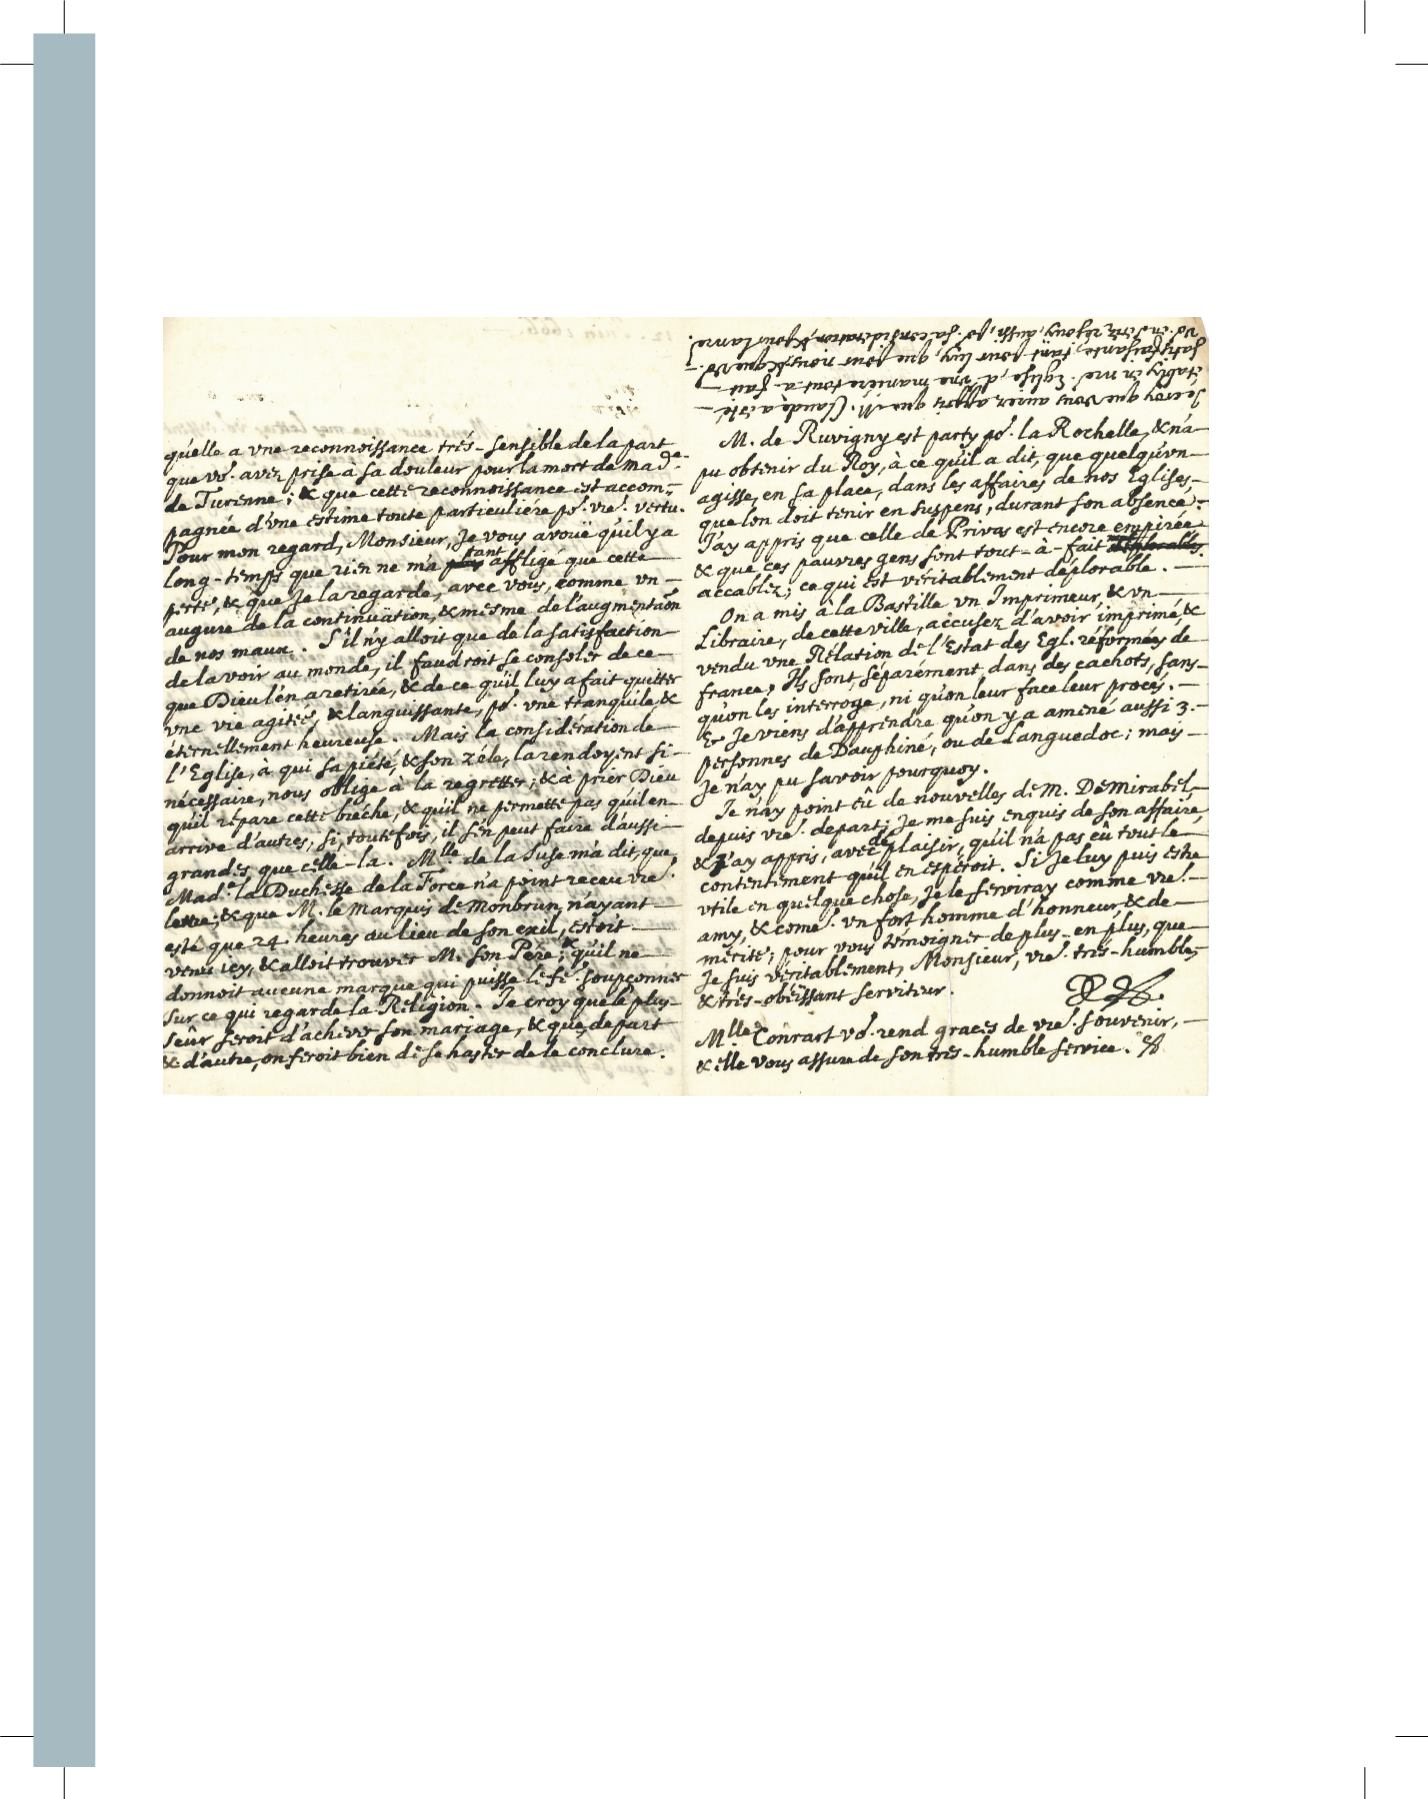 qu'elle a vne reconnoissance trés-sensible de la part
que vo⁹. avez prise a sa douleur pour la mort de Mad.ᵉ
de Turenne; & que cette reconnoissance est accom-
pagnée d'vne estime toute particuliére po.ʳ vre. vertu.
Pour mon regard, Monsieur, Je vous avouë qu'il y a
long-temps que rien ne m'a tant affligé que cette
perte, & que Je la regarde, avec vous, comme vn
augure de la continuätion, & mesme de l'augmentãon
de nos maux. S'il n'y alloit que de la satisfaction
de la voir au monde, il faudroit se consoler de ce
que Dieu l'en a retirée, & de ce qu'il luy a fait quitter
vne vie agitée, & languissante, po.ʳ vne tranquile, &
éternellement heureuse. Mais la considération de
l'Eglise, à qui sa piété, & son zéle, la rendoyent si
nécessaire, nous oblige à la regretter; & à prier Dieu
qu'il répare cette bréche, & qu'il ne permette pas qu'il en
arrive d'autres, si, toutefois, il s'en peut faire d'aussi
grandes que celle-la. M.lle de la Suse m'a dit, que
Mad.ᵉ la Duchesse de la Force n'a point receu vre.
lettre; & que M. le Marquis de Monbrun, n'ayant
esté que 24. heures au lieu de son exil, estoit
venu icy, & alloit trouver M. son Pére; & qu'il ne
donnoit aucune marque qui puisse le fe.ʳ soupçonner
sur ce qui regarde la Religion. Je croy que le plus
seûr seroit d'achever son mariage, & que, de part
& d'autre, on feroit bien de se haster de le conclure.
M. de Ruvigny est party po.ʳ la Rochelle, & n'a
pu obtenir du Roy, à ce qu'il a dit, que quelqu'vn
agisse, en sa place, dans les affaires de nos Eglises,
que l'on doit tenir en suspens, durant son absence.
J'ay appris que celle de Privas est encore empirée
& que ces pauvres gens sont tout-à-fait
accablez; ce qui est véritablement déplorable.
On a mis à la Bastille vn Imprimeur, & vn
Libraire, de cette ville, accusez d'avoir imprimé, &
vendu vne Rélation de l'Estat des Egl. réformées de
france. Ils sont, séparément, dans des cachots, sans
qu'on les interroge, ni qu'on leur face leur procés.
& Je viens d'apprendre qu'on y a amené aussi 3.
personnes de Dauphiné, ou de Languedoc; mais
Je n'ay pu savoir pourquoy.
Je n'ay point eû de nouvelles de M. De Mirabel,
depuis vre. depart; Je me suis enquis de son affaire,
& J'ay appris, avec déplaisir, qu'il n'a pas eû tout le
contentement qu'il en espéroit. Si Je luy puis estre
vtile en quelque chose, Je le serviray comme vre.
amy, & come vn fort homme d'honneur, & de
mérite; pour vous témoigner de plus en plus, que
Je suis véritablement, Monsieur, vre. trés-humble,
& trés-obéïssant serviteur.
M.lle Conrart vo⁹. rend graces de vre. souvenir,
& elle vous assure de son trés-humble service.
Je croy que vous aurez appris que M. Claude a esté
étably en nre. Eglise, d'vne maniére tout-a-fait
satisfaisante, tant pour luy, que pour nous; & que vo⁹.
vo⁹. en serez réjouy, aussi, po.ʳ sa considération, & pour la nre.